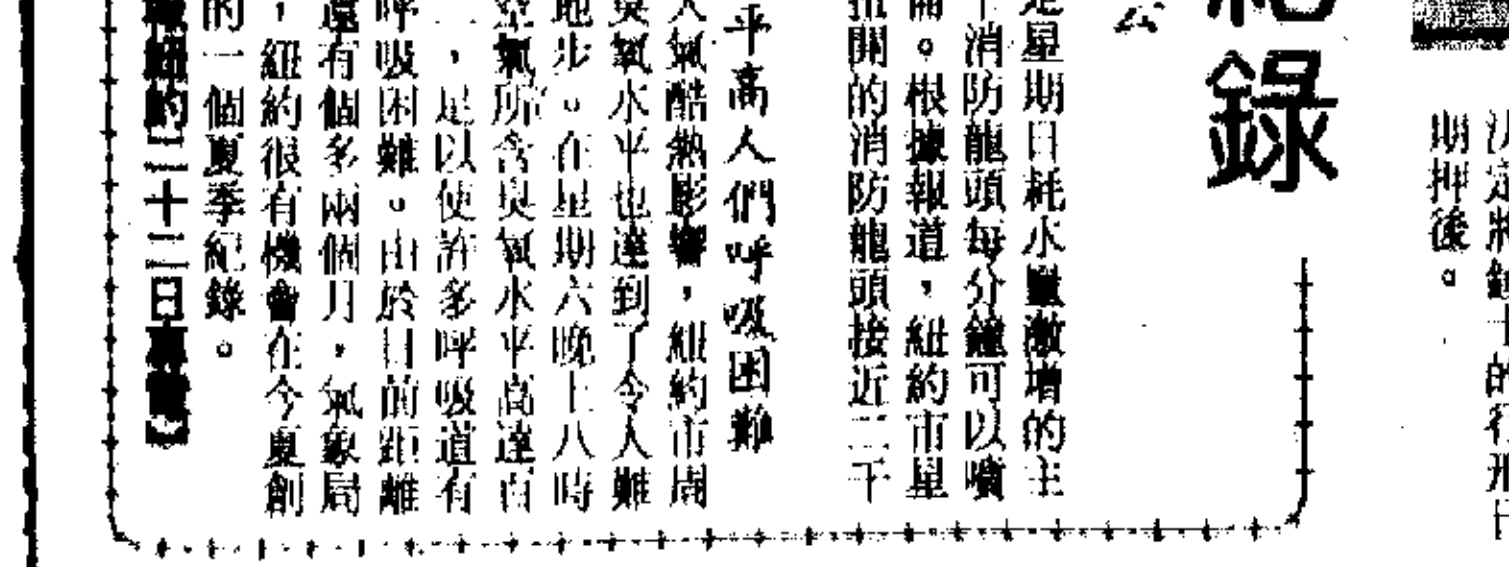 決定將士的行刑日
期押後。
紀錄
是星期日耗水量激增的主
消防龍頭每分鐘可以噴
。根據報道，紐約市星
扭開的消防龍頭接近二千
平高人們呼吸困難
天氣酷熱影響，紐約市周
臭氧水平也達到了令人難
地步。在星期六晚上八時
空氣所含臭氧水平高達百
，足以使許多呼吸道有
呼吸困難。由於目前距離
還有個多兩個月，氣象局
，紐約很有機會在今夏創
的一個夏季紀錄。
紐約二十二日專電】